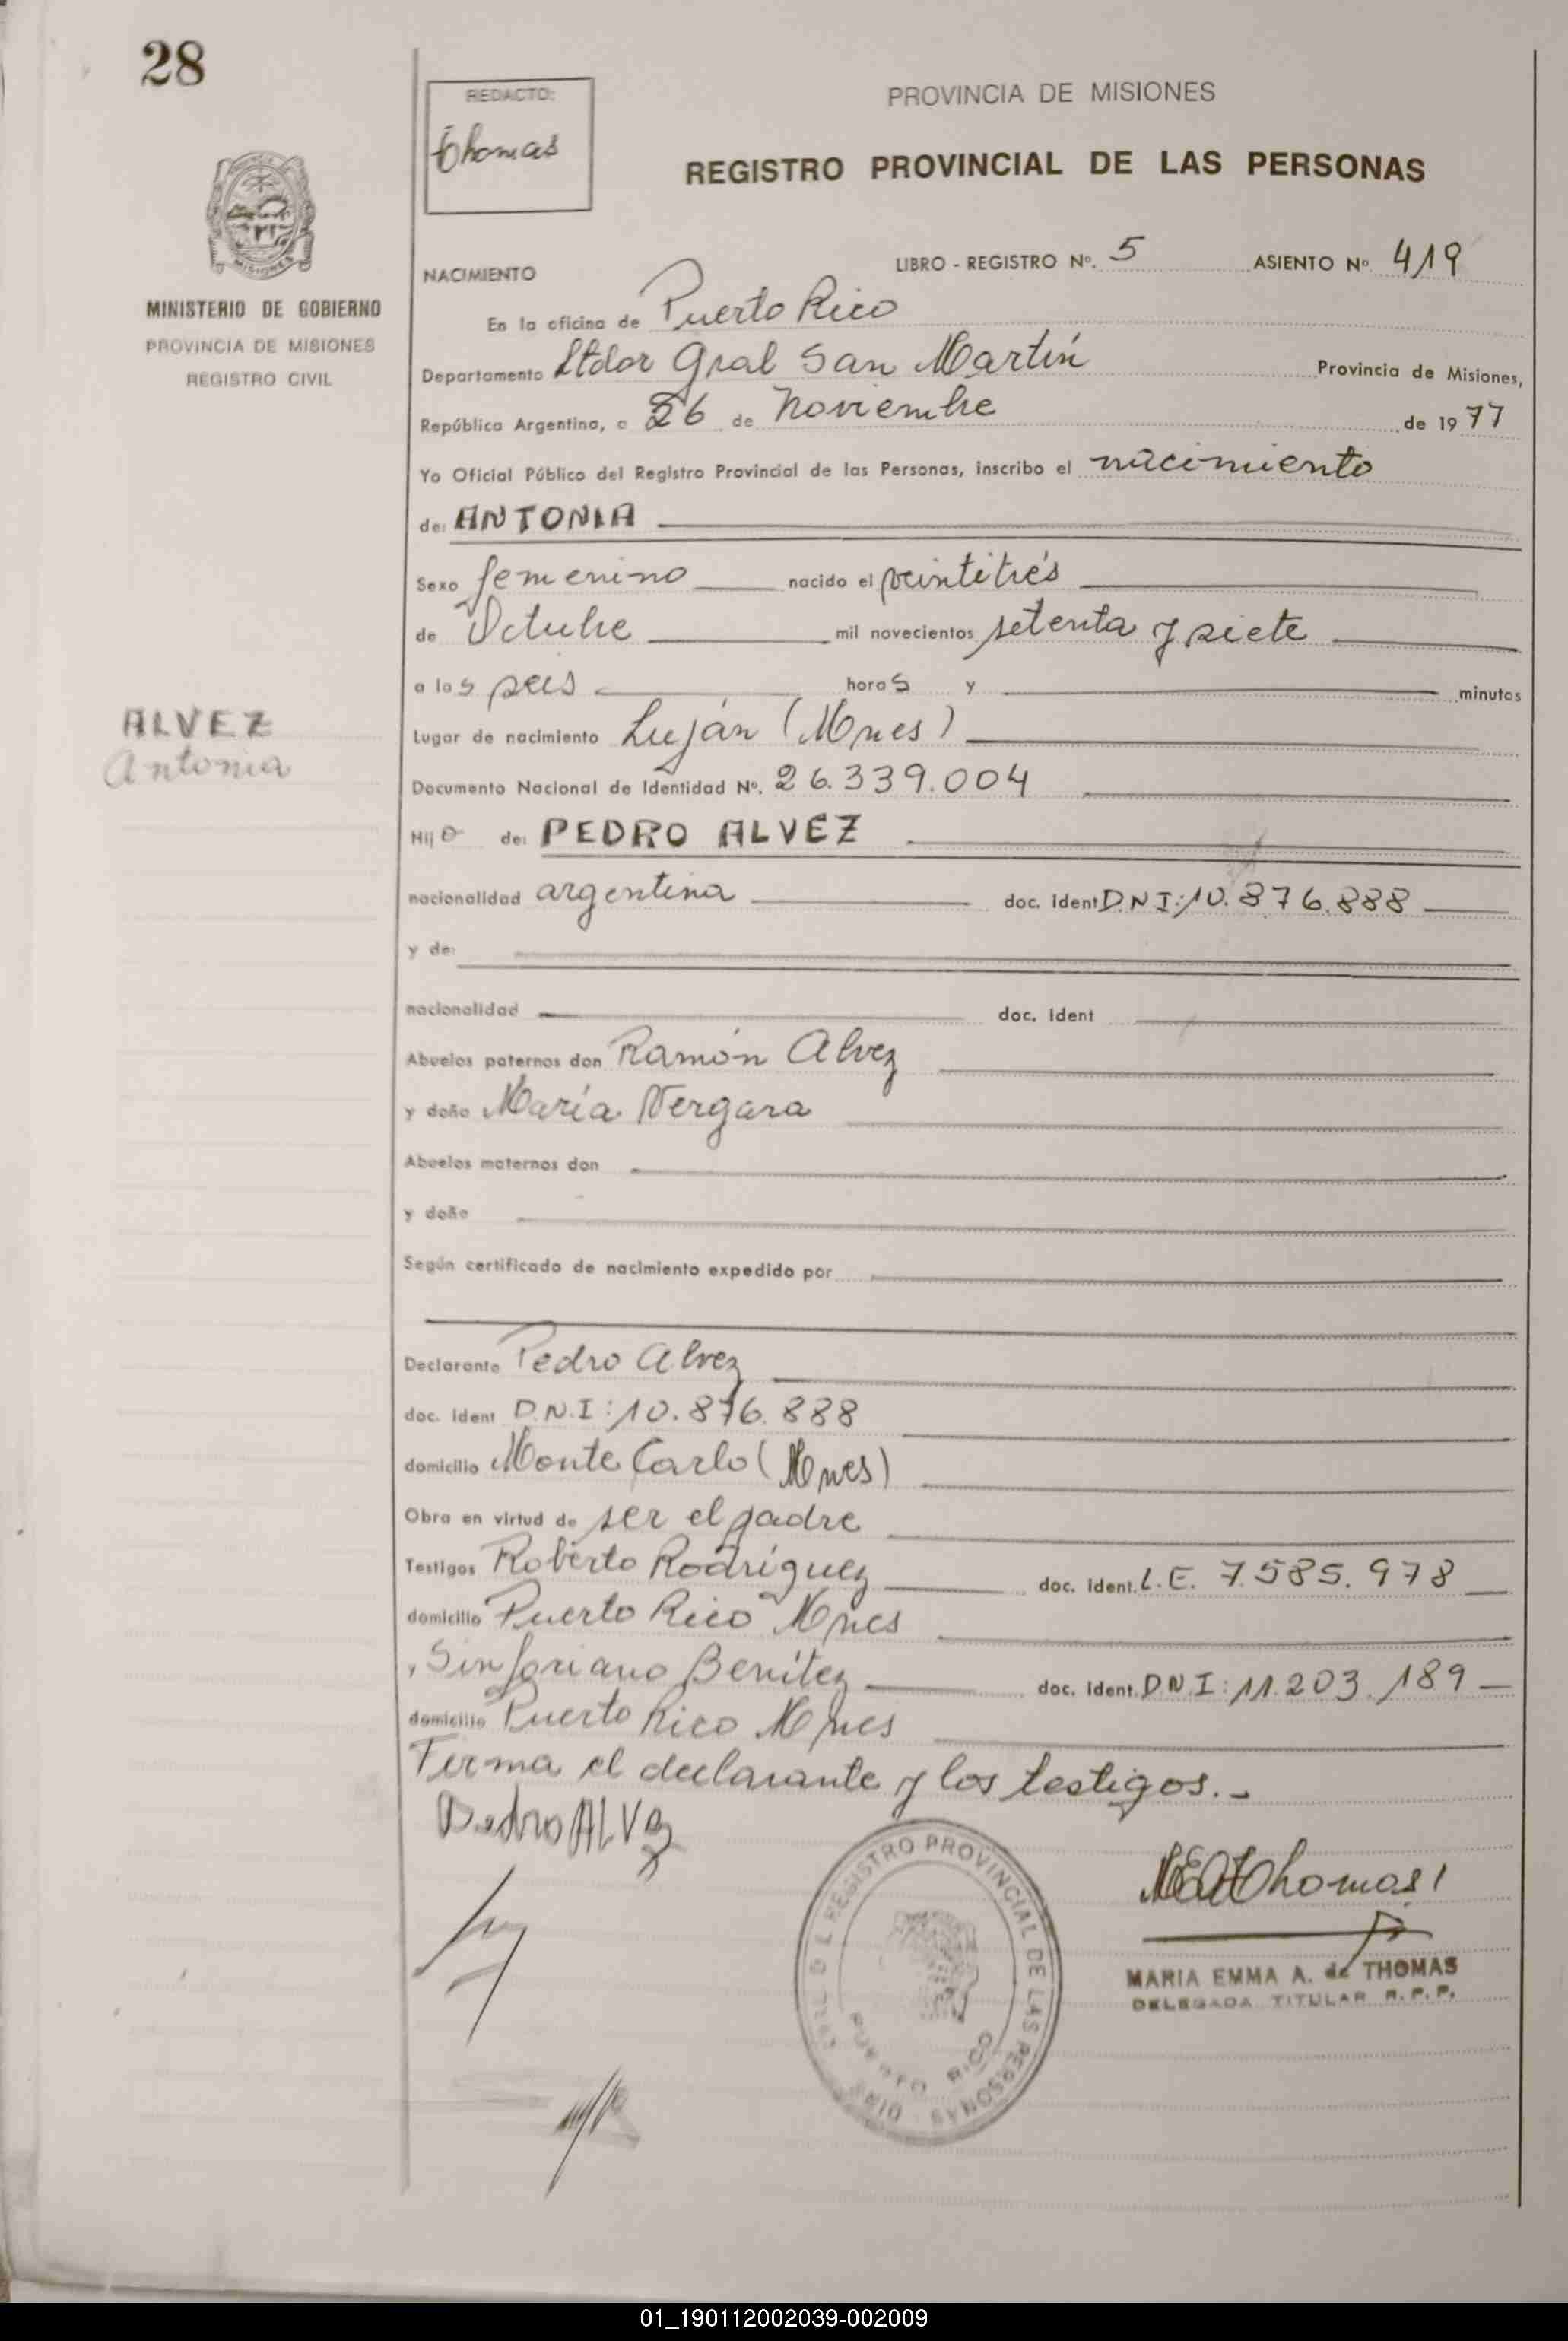 28
REDACTO:
Thomas
PROVINCIA DE MISIONES
REGISTRO PROVINCIAL DE LAS PERSONAS
MISIONES
MINISTERIO DE GOBIERNO
PROVINCIA DE MISIONES
REGISTRO CIVIL
NACIMIENTO
LIBRO - REGISTRO Nº. 5 ASIENTO Nº 419
En la oficina de Puerto Rico
Departamento Ltdor Gral San Martín Provincia de Misiones,
República Argentina, a 26 de Noviembre de 1977
Yo Oficial Público del Registro Provincial de las Personas, inscribo el nacimiento
de: ANTONIA
Sexo femenino nacido el veintitrés
de Octubre mil novecientos setenta y siete
a las seis horas y minutos
ALVEZ
Antonia
Lugar de nacimiento Luján (Mnes)
Documento Nacional de Identidad Nº. 26.339.004
Hija de: PEDRO ALVEZ
nacionalidad argentina doc. ident D.N.I:10.876.888
y de:
nacionalidad doc. ident
Abuelos paternos don Ramón Alvez
y doña María Vergara
Abuelos maternos don
y doña
Según certificado de nacimiento expedido por
Declarante Pedro Alvez
doc. ident D.N.I:10.876.888
domicilio Monte Carlo (Mnes)
Obra en virtud de ser el padre
Testigos Roberto Rodríguez doc. ident. L.E. 7.585.978
domicilio Puerto Rico Mnes
, Sinforiano Benítez doc. ident. D.N.I:11.203.189
domicilio Puerto Rico Mnes
Firma el declarante y los testigos.-
Pedro ALVez
REGISTRO PROVINCIAL DE LAS PERSONAS
PUERTO RICO
MEAThomas
MARIA EMMA A. de THOMAS
DELEGADA TITULAR R.P.P.
01_190112002039-002009